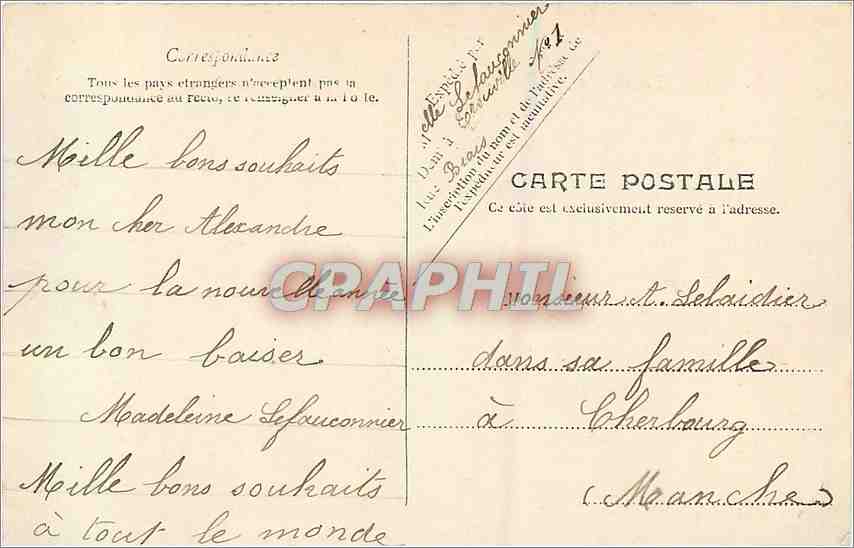 Correspondance
Tous les pays etrangers n'acceptent pas la
correspondance au recto, se renseigner à la Poste.
Mille bons souhaits
mon cher Alexandre
pour la nouvelle année
un bon baiser
Madeleine Lefauconnier
Mille bons souhaits
à tout le monde
Expédié par
elle Lefauconnier
Dem à Trouville
rue Biais No 1
L'inscription du nom et de l'adresse de
l'expéditeur est facultative.
CARTE POSTALE
Ce côté est exclusivement reservé à l'adresse.
CPAPHIL
Monsieur A. Lelaidier
dans sa famille
à Cherbourg
(Manche)